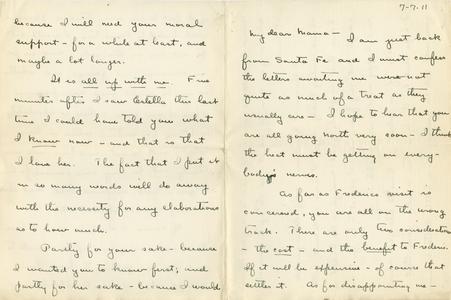 7-7-11
My dear Mama - I am just back
from Santa Fe and I must confess
the letters awaiting me were not
quite as much of a treat as they
usually are - I hope to hear that you
are all going north very soon - I think
the heat must be getting on every-
body's nerves.
As far as Frederics visit is
concerned, you are all on the wrong
track. There are only two considerations
- the cost - and the benefit to Frederic.
If it will be expensive - of course that
settles it. As for disappointing me -
because I will need your moral
support - for a while at least, and
maybe a lot longer.
It is all up with me. Five
minutes after I saw Estella this last
time I could have told you what
I know now - and that is that
I love her. The fact that I put it
in so many words will do away
with the necessity for any elaborations
as to how much.
Partly for your sake - because
I wanted you to know first; and
partly for her sake - because I would